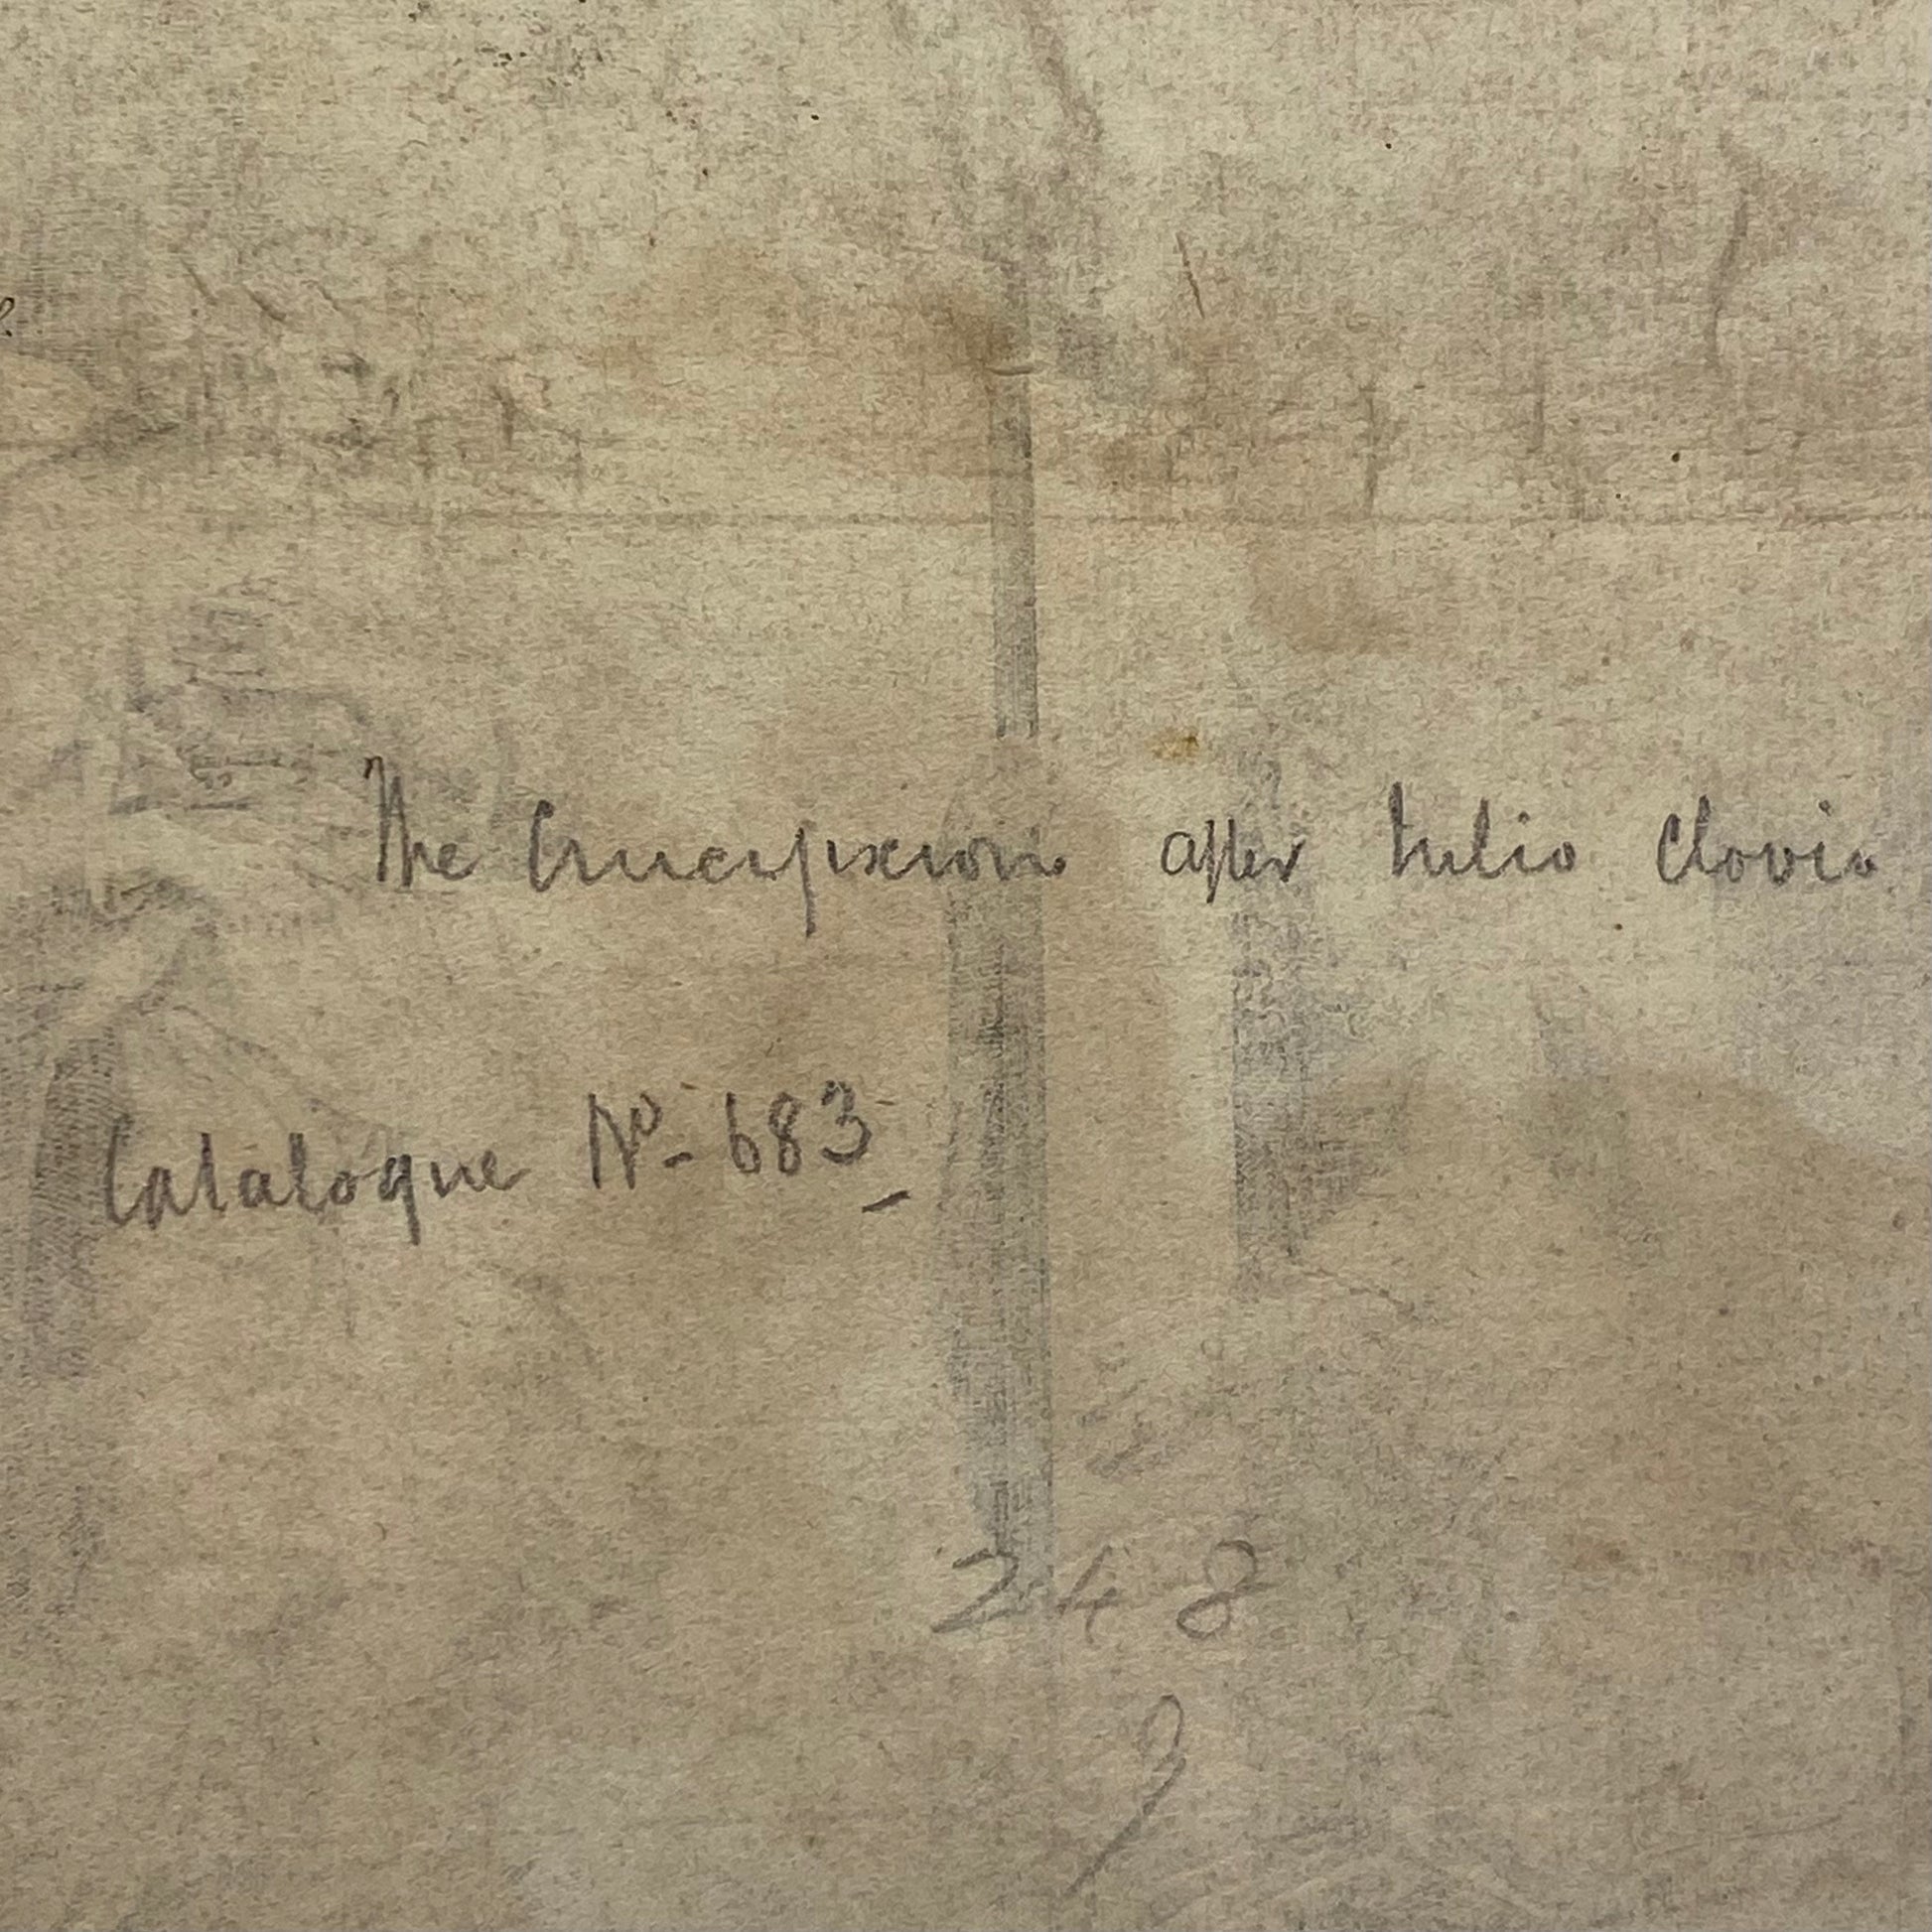 The Crucifixion after Julio Clovio
Catalogue No 683
248
9